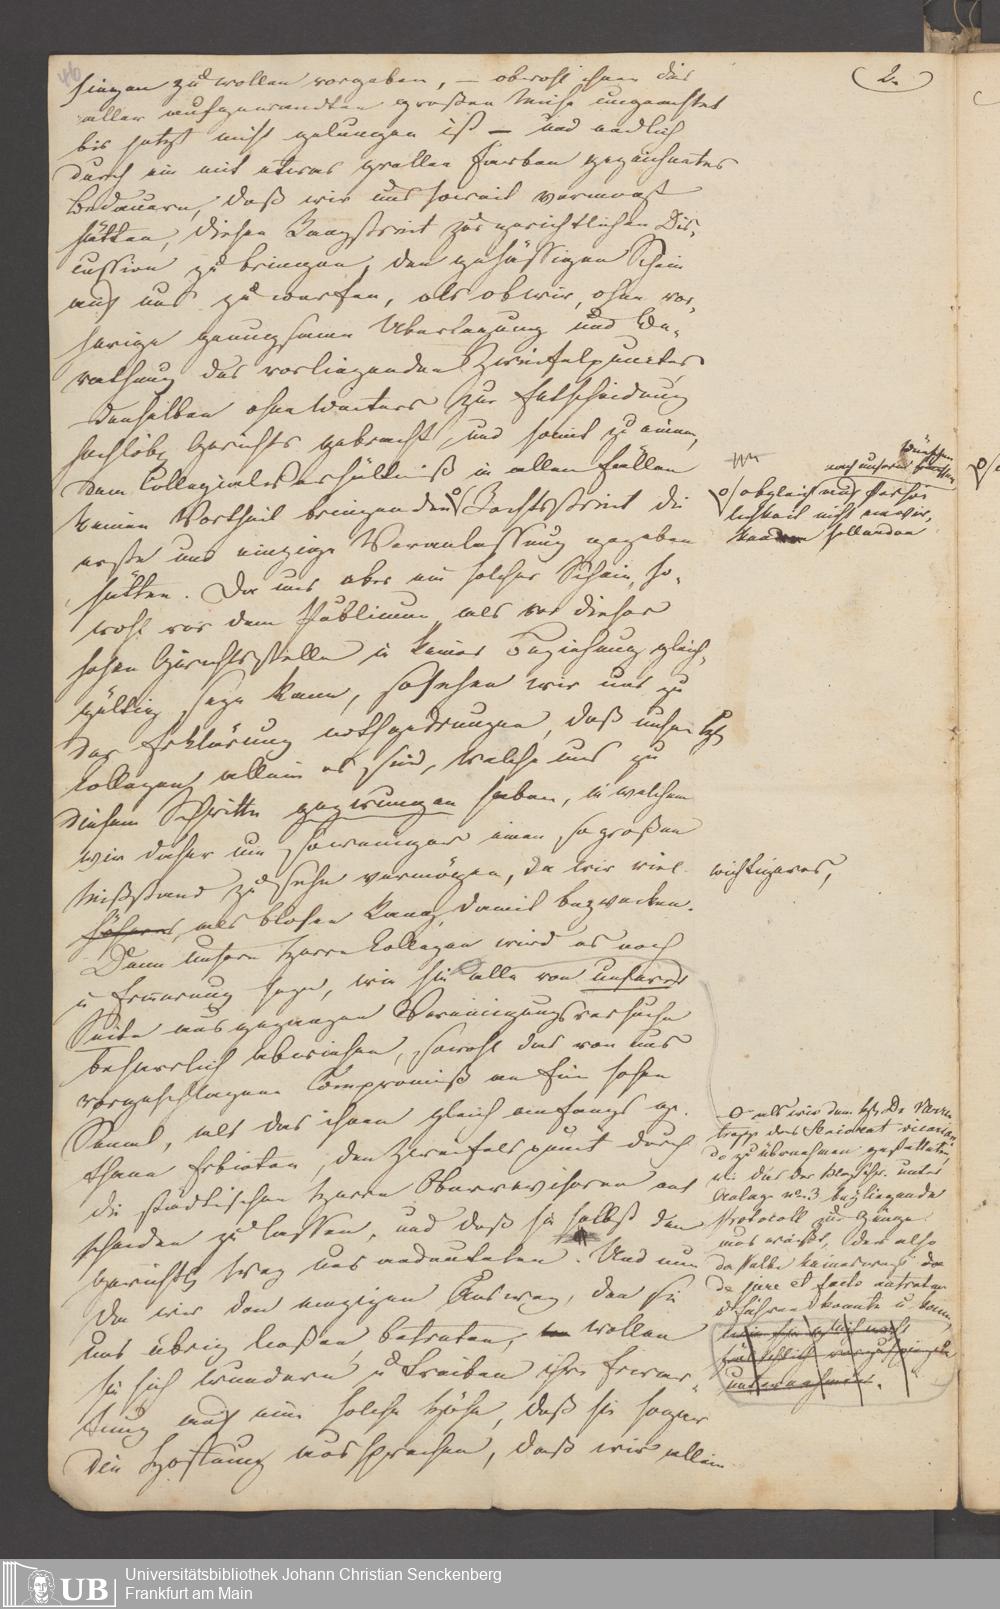 46
2.
singen zu wollen vorgeben, — obwohl ihnen dies
aller aufgewandten großen Mühe ungeachtet
bis jetzt nicht gelungen ist — und endlich
durch ein mit etwas grellen Farben gezeichnetes
Bedauern, daß wir uns soweit vermocht
hätten, diesen Rangstreit zur gerichtlichen Dis-
cussion zu bringen, den gehässigen Schein
auf uns zu werfen, als ob wir, ohne vor-
herige genugsame Überlegung und Be-
rathung des vorliegenden Zweifelpunctes
denselben ohne Weiteres zur Entscheidung
hochlöbl. Gerichts gebracht, und somit zu einem,
dem Collegialverhältniß in allen Fällen
keinen Vortheil bringenden Rechtsstreit die
erste und einzige Veranlassung gegeben
hätten. Da uns aber ein solcher Schein, so-
wohl vor dem Publicum als vor dieser
hohen Gerichtsstelle in keiner Beziehung gleich-
gültig seyn kann, so sehen wir uns zu
der Erklärung nothgedrungen, daß unsere
Collegen allein es sind, welche uns zu
diesem Schritte gezwungen haben, in welchem
wir daher um soweniger einen so großen
Mißstand zu sehn vermögen, da wir viel
höheres, als blosen Rang, damit bezwecken.
wichtigeres,
Denn unsern Herrn Collegen wird es noch
in Erinnerung seyn, wie sie alle von unserer
Seite ausgegangenen Vereinigungsversuche
beharrlich abwiesen, sowohl das von uns
vorgeschlagene Compromiß an Ein hohen
Senat, als das ihnen gleich anfangs ge-
thane Erbieten, den Zweifelspunct durch
die städtischen Herrn Oberrevisoren ent-
scheiden zu lassen, und daß sie selbst den
gerichtl. Weg uns andeuteten. Und nun
da wir den einzigen Ausweg, den sie
uns übrig ließen, betraten, wollen
sie sich wundern u treiben ihre Erwar-
tung auf eine solche Höhe, daß sie sogar
die Hoffnung aussprachen, daß wir allein
nach unsern Wünschen
obgleich auf Persön
lichkeit nicht
sollenden
als wir dem H. Dr Varren
trapp das Seniorat vicarian-
do zu übernehmen gestatteten,
wie dies der
Anlage No. 3 beyliegende
Protocoll zur Genüge
ausweißt, der also
dasselbe keineswegs
de jure et facto antreten
u führen konnte u kann,